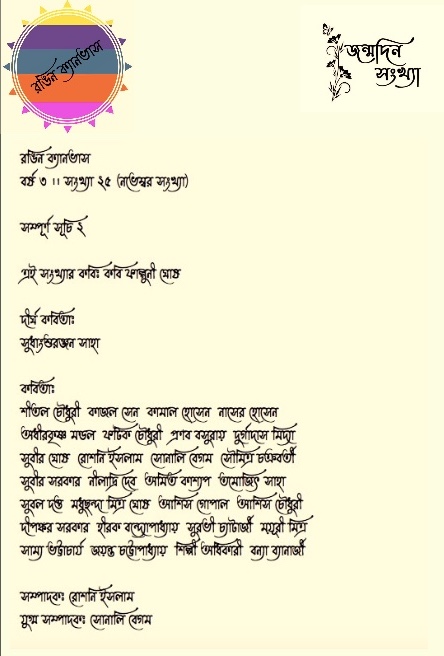 রঙিন ক্যানভাস
জন্মদিন
সংখ্যা
রঙিন ক্যানভাস
বর্ষ ৩ ।। সংখ্যা ২৫ (নভেম্বর সংখ্যা)
সম্পূর্ণ সূচি ২
এই সংখ্যার কবিঃ কবি ফাল্গুনী ঘোষ
দীর্ঘ কবিতাঃ
সুধাংশুরঞ্জন সাহা
কবিতাঃ
শীতল চৌধুরী কাজল সেন কামাল হোসেন নাসের হোসেন
অধীরকৃষ্ণ মন্ডল ফটিক চৌধুরী প্রণব বসুরায় দুর্গাদাস মিদ্যা
সুবীর ঘোষ রোশনি ইসলাম সোনালি বেগম সৌমিত্র চক্রবর্তী
সুবীর সরকার নীলাদ্রি দেব অমিত কাশ্যপ তমোজিৎ সাহা
সুবল দত্ত মধুছন্দা মিত্র ঘোষ আশিস গোপাল আশিস চৌধুরী
দীপঙ্কর সরকার হীরক বন্দ্যোপাধ্যায় সুরভী চ্যাটার্জী ময়ূরী মিত্র
সাম্য ভট্টাচার্য জয়ন্ত চট্টোপাধ্যায় শিল্পী অধিকারী বন্যা ব্যানার্জী
সম্পাদকঃ রোশনি ইসলাম
যুগ্ম সম্পাদকঃ সোনালি বেগম